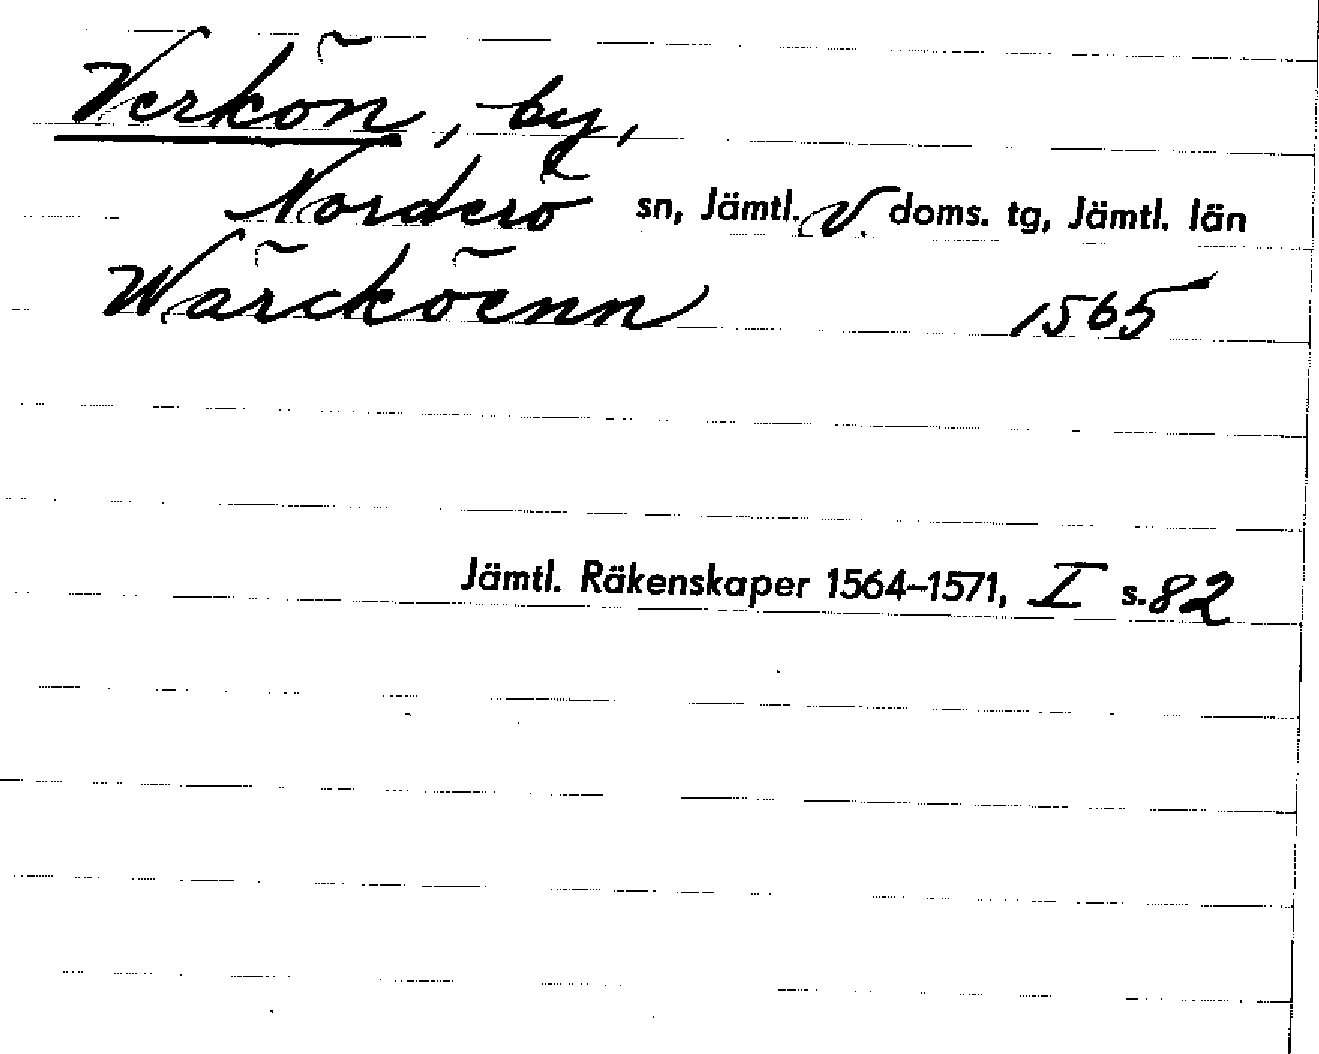 Verkön, by,
Norderö sn, Jämtl. V. doms. tg, Jämtl. län
Wärcköenn 1565
Jämtl. Räkenskaper 1564–1571, I s. 82